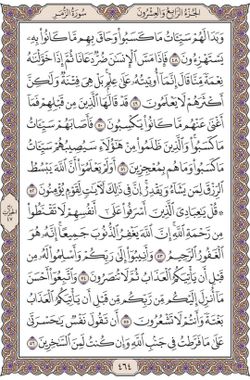 الجزء الرابع والعشرون سورة الزمر
وَبَدَا لَهُمْ سَيِّئَاتُ مَا كَسَبُوا وَحَاقَ بِهِم مَّا كَانُوا بِهِ
يَسْتَهْزِءُونَ ٤٨ فَإِذَا مَسَّ الْإِنسَانَ ضُرٌّ دَعَانَا ثُمَّ إِذَا خَوَّلْنَاهُ
نِعْمَةً مِّنَّا قَالَ إِنَّمَا أُوتِيتُهُ عَلَىٰ عِلْمٍ بَلْ هِيَ فِتْنَةٌ وَلَٰكِنَّ
أَكْثَرَهُمْ لَا يَعْلَمُونَ ٤٩ قَدْ قَالَهَا الَّذِينَ مِن قَبْلِهِمْ فَمَا
أَغْنَىٰ عَنْهُم مَّا كَانُوا يَكْسِبُونَ ٥٠ فَأَصَابَهُمْ سَيِّئَاتُ
مَا كَسَبُوا وَالَّذِينَ ظَلَمُوا مِنْ هَٰؤُلَاءِ سَيُصِيبُهُمْ سَيِّئَاتُ
مَا كَسَبُوا وَمَا هُم بِمُعْجِزِينَ ٥١ أَوَلَمْ يَعْلَمُوا أَنَّ اللَّهَ يَبْسُطُ
الرِّزْقَ لِمَن يَشَاءُ وَيَقْدِرُ إِنَّ فِي ذَٰلِكَ لَآيَاتٍ لِّقَوْمٍ يُؤْمِنُونَ ٥٢
قُلْ يَا عِبَادِيَ الَّذِينَ أَسْرَفُوا عَلَىٰ أَنفُسِهِمْ لَا تَقْنَطُوا
مِن رَّحْمَةِ اللَّهِ إِنَّ اللَّهَ يَغْفِرُ الذُّنُوبَ جَمِيعًا إِنَّهُ هُوَ
الْغَفُورُ الرَّحِيمُ ٥٣ وَأَنِيبُوا إِلَىٰ رَبِّكُمْ وَأَسْلِمُوا لَهُ مِن
قَبْلِ أَن يَأْتِيَكُمُ الْعَذَابُ ثُمَّ لَا تُنصَرُونَ ٥٤ وَاتَّبِعُوا أَحْسَنَ
مَا أُنزِلَ إِلَيْكُم مِّن رَّبِّكُم مِّن قَبْلِ أَن يَأْتِيَكُمُ الْعَذَابُ
بَغْتَةً وَأَنتُمْ لَا تَشْعُرُونَ ٥٥ أَن تَقُولَ نَفْسٌ يَا حَسْرَتَىٰ
عَلَىٰ مَا فَرَّطتُ فِي جَنبِ اللَّهِ وَإِن كُنتُ لَمِنَ السَّاخِرِينَ ٥٦
٤٦٤